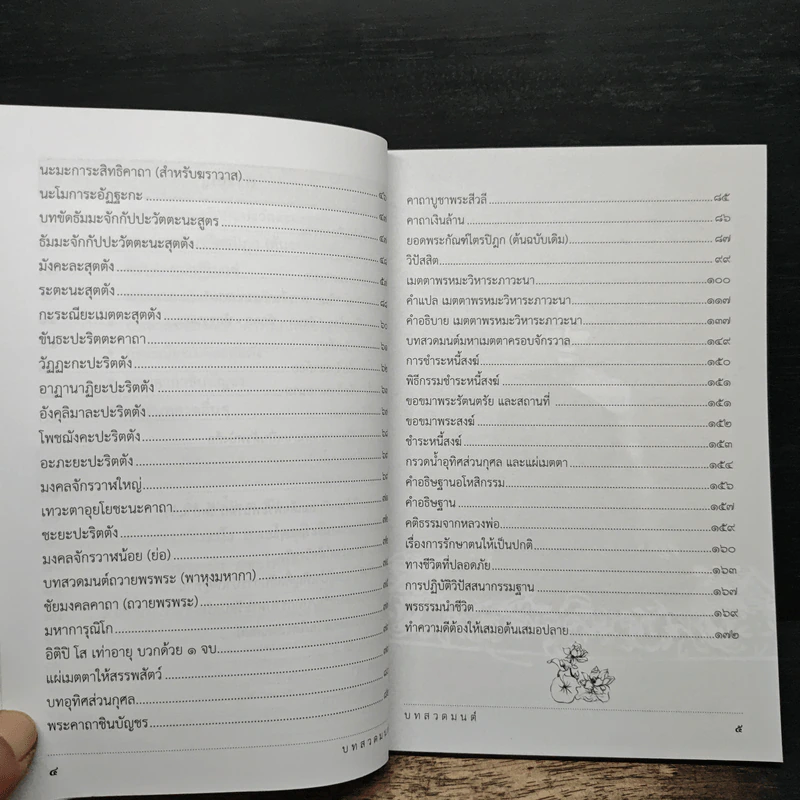 นะมะการะสิทธิคาถา (สำหรับฆราวาส)
นะโมการะอัฏฐะกะ
บทขัดธัมมะจักกัปปะวัตตะนะสูตร
ธัมมะจักกัปปะวัตตะนะสุตตัง
มังคะละสุตตัง
ระตะนะสุตตัง
กะระณียะเมตตะสุตตัง
ขันธะปะริตตะคาถา
วัฏฏะกะปะริตตัง
อาฏานาฏิยะปะริตตัง
อังคุลิมาละปะริตตัง
โพชฌังคะปะริตตัง
อะภะยะปะริตตัง
มงคลจักรวาฬใหญ่
เทวะตาอุยโยชะนะคาถา
ชะยะปะริตตัง
มงคลจักรวาฬน้อย (ย่อ)
บทสวดมนต์ถวายพรพระ (พาหุงมหากา)
ชัยมงคลคาถา (ถวายพรพระ)
มหาการุณิโก
อิติปิ โส เท่าอายุ บวกด้วย ๑ จบ
แผ่เมตตาให้สรรพสัตว์
บทอุทิศส่วนกุศล
พระคาถาชินบัญชร
บทสวดมนต์
๔
คาถาบูชาพระสีวลี ๘๕
คาถาเงินล้าน ๘๖
ยอดพระกัณฑ์ไตรปิฎก (ต้นฉบับเดิม) ๘๗
วิปัสสิต ๙๙
เมตตาพรหมะวิหาระภาวะนา ๑๐๐
คำแปล เมตตาพรหมะวิหาระภาวะนา ๑๑๗
คำอธิบาย เมตตาพรหมะวิหาระภาวะนา ๑๓๗
บทสวดมนต์มหาเมตตาครอบจักรวาล ๑๔๙
การชำระหนี้สงฆ์ ๑๕๐
พิธีกรรมชำระหนี้สงฆ์ ๑๕๑
ขอขมาพระรัตนตรัย และสถานที่ ๑๕๑
ขอขมาพระสงฆ์ ๑๕๒
ชำระหนี้สงฆ์ ๑๕๓
กรวดน้ำอุทิศส่วนกุศล และแผ่เมตตา ๑๕๔
คำอธิษฐานอโหสิกรรม ๑๕๖
คำอธิษฐาน ๑๕๗
คติธรรมจากหลวงพ่อ ๑๕๙
เรื่องการรักษาตนให้เป็นปกติ ๑๖๐
ทางชีวิตที่ปลอดภัย ๑๖๓
การปฏิบัติวิปัสสนากรรมฐาน ๑๖๗
พรธรรมนำชีวิต ๑๖๙
ทำความดีต้องให้เสมอต้นเสมอปลาย ๑๗๒
บทสวดมนต์
๕